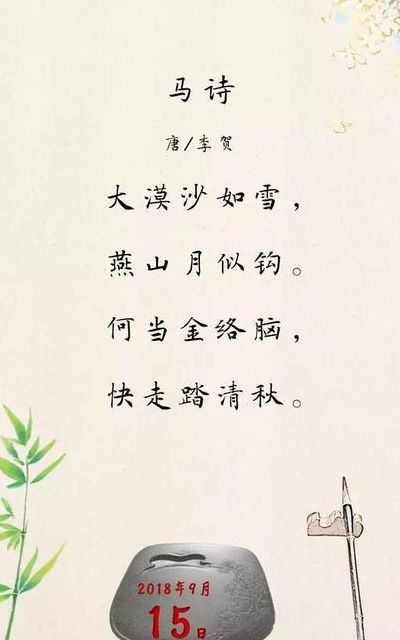 马诗
唐/李贺
大漠沙如雪，
燕山月似钩。
何当金络脑，
快走踏清秋。
2018年9月
15日